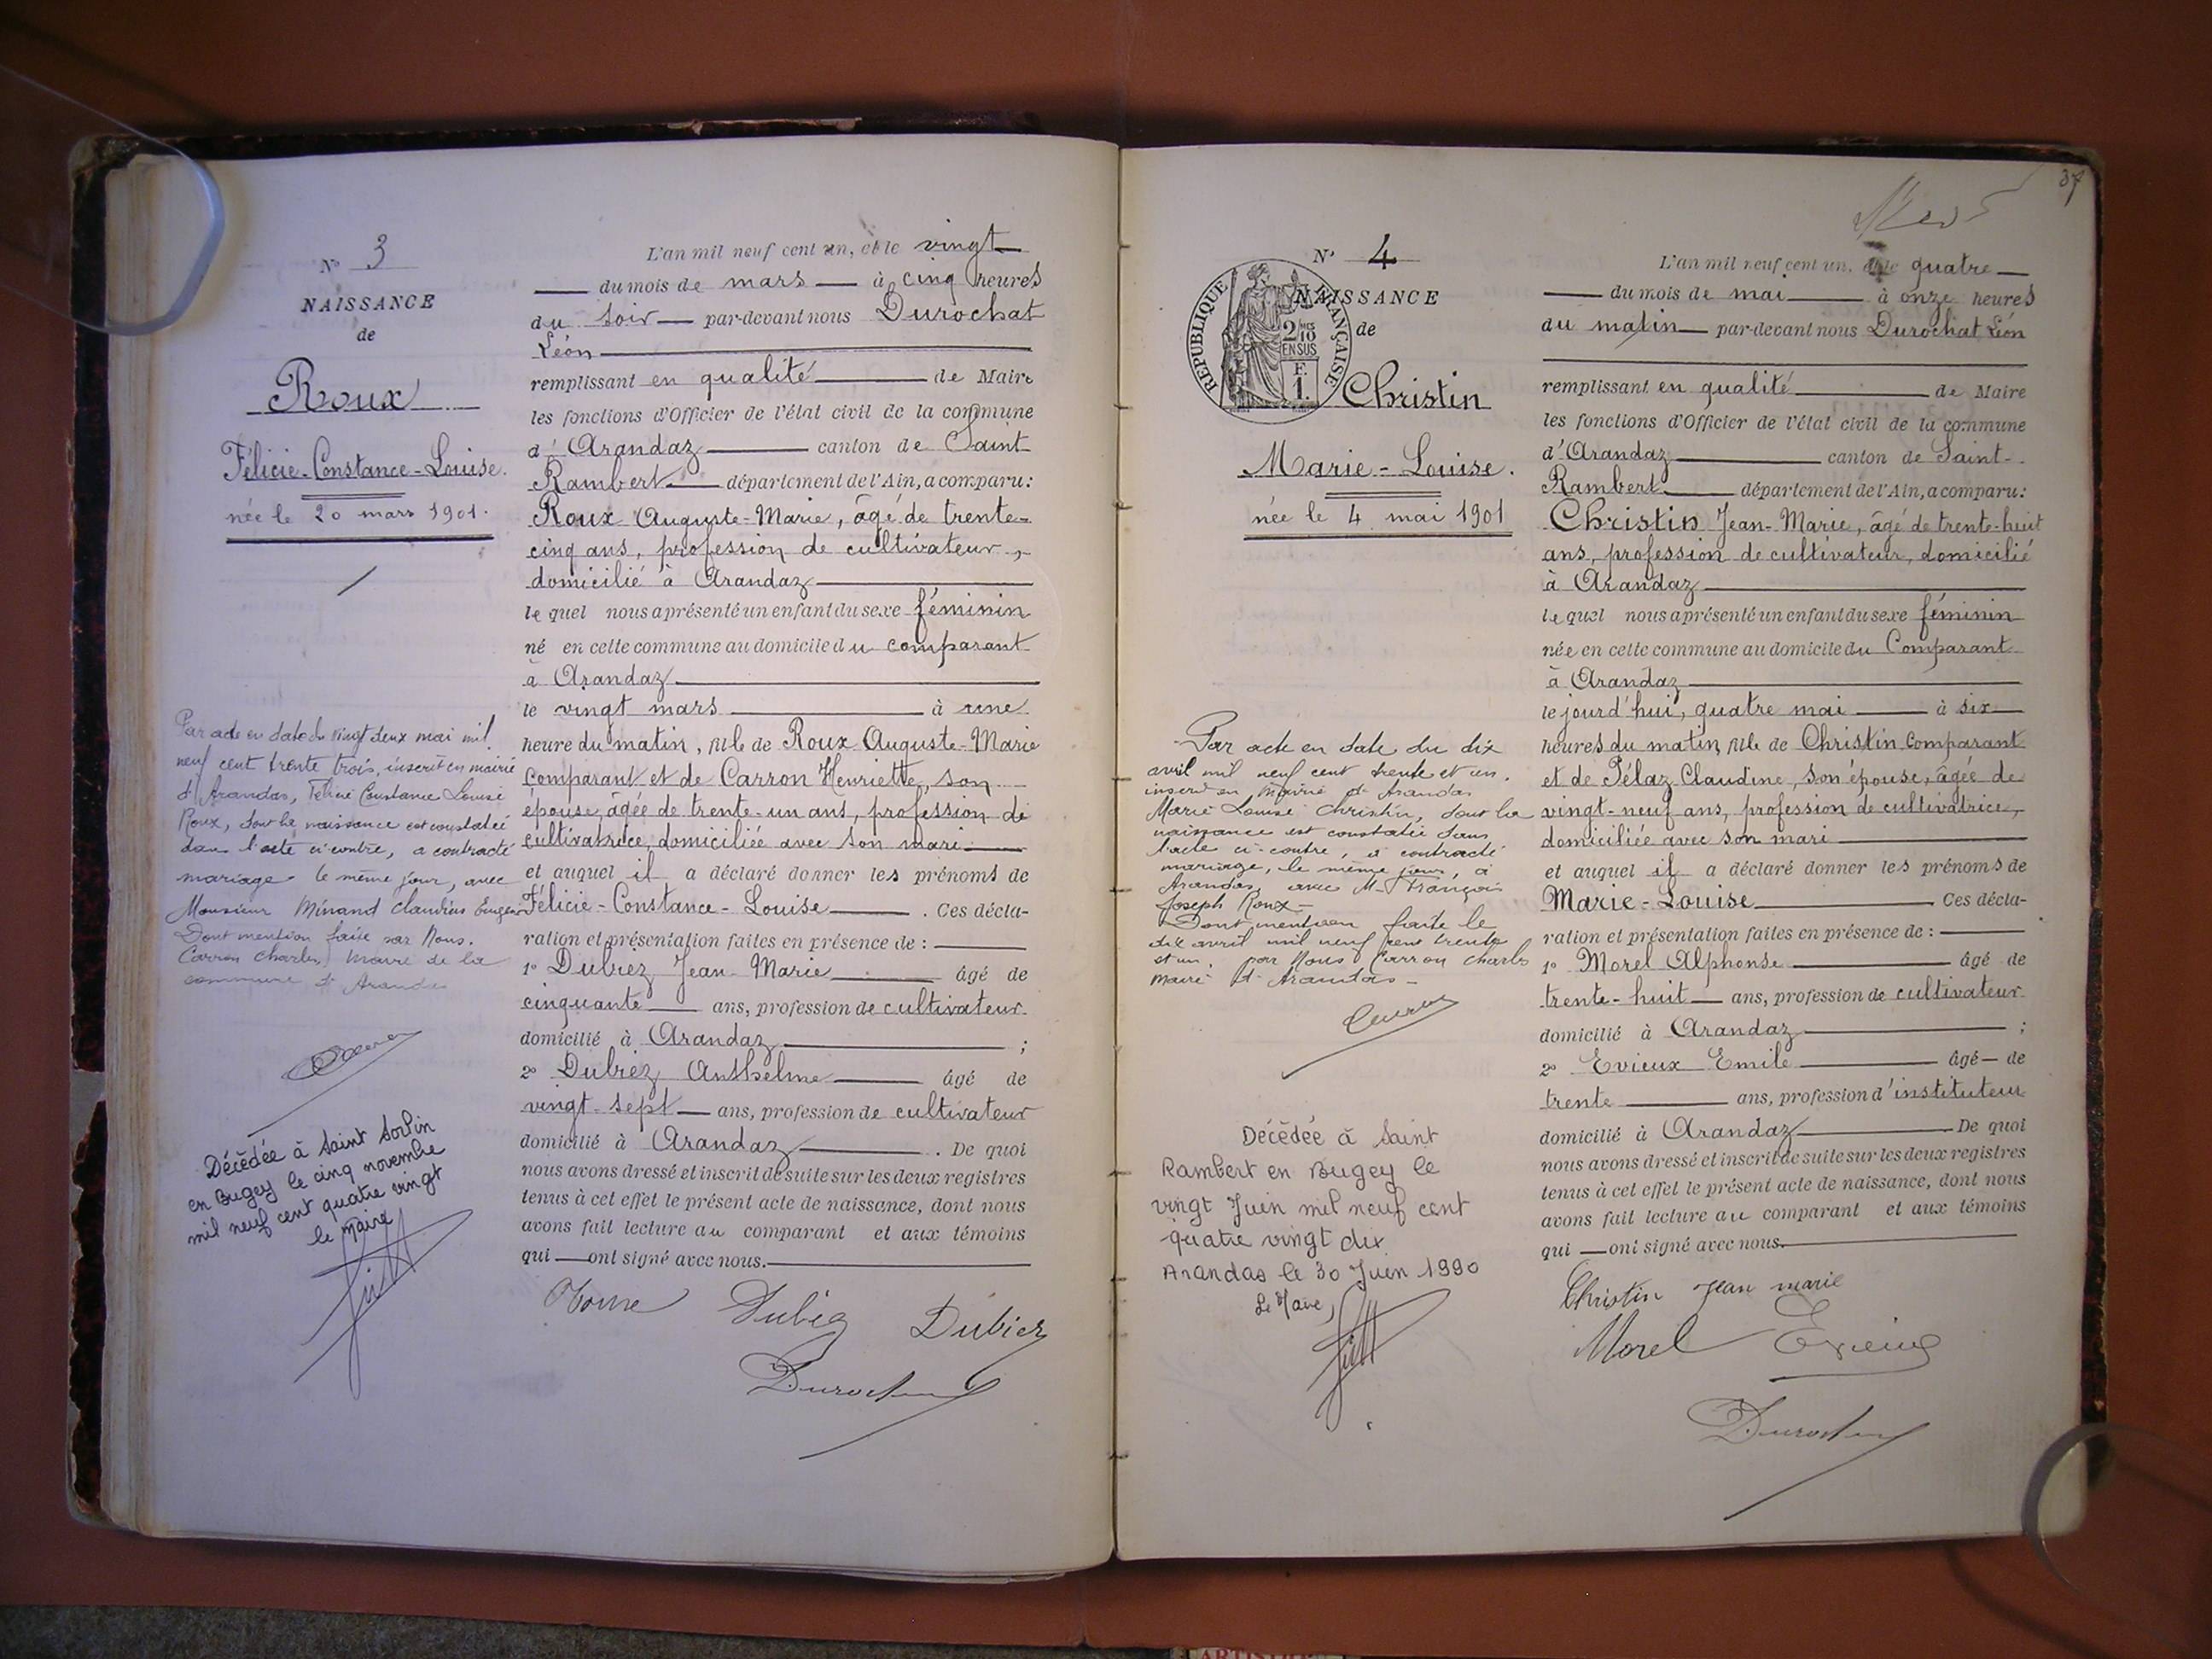 N° 3
NAISSANCE
de
Roux
Félicie-Constance-Louise.
née le 20 mars 1901.
Par acte en date du vingt deux mai mil
neuf cent trente trois, inscrit en mairie
d'Arandas, Félicie Constance Louise
Roux, dont la naissance est constatée
dans l'acte ci-contre, a contracté
mariage le même jour, avec
Monsieur Minand Claudius Eugène
Dont mention faite par Nous.
Carron Charles, Maire de la
commune d'Arandas
Décédée à Saint Sorlin
en Bugey le cinq novembre
mil neuf cent quatre vingt
le Maire
L'an mil neuf cent un, et le vingt
du mois de mars à cinq heures
du soir par-devant nous Durochat
Léon
remplissant en qualité de Maire
les fonctions d'Officier de l'état civil de la commune
d'Arandaz canton de Saint
Rambert département de l'Ain, a comparu:
Roux Auguste-Marie, âgé de trente-
cinq ans, profession de cultivateur,
domicilié à Arandaz
lequel nous a présenté un enfant du sexe féminin
né en cette commune au domicile du comparant
à Arandaz
le vingt mars à une
heure du matin, fille de Roux Auguste-Marie
comparant et de Carron Henriette, son
épouse âgée de trente-un ans, profession de
cultivatrice, domiciliée avec son mari
et auquel il a déclaré donner les prénoms de
Félicie-Constance-Louise. Ces décla-
ration et présentation faites en présence de :
1° Dubiez Jean-Marie âgé de
cinquante ans, profession de cultivateur
domicilié à Arandaz ;
2° Dubiez Anthelme âgé de
vingt-sept ans, profession de cultivateur
domicilié à Arandaz. De quoi
nous avons dressé et inscrit de suite sur les deux registres
tenus à cet effet le présent acte de naissance, dont nous
avons fait lecture au comparant et aux témoins
qui ont signé avec nous.
Dubiez Dubiez
Durochat
37
N° 4
NAISSANCE
de
RÉPUBLIQUE FRANÇAISE
2/10 MES
EN SUS
F.
1.
Christin
Marie-Louise.
née le 4 mai 1901
Par acte en date du dix
avril mil neuf cent trente et un,
inscrit en Mairie d'Arandas
Marie Louise Christin, dont la
naissance est constatée dans
l'acte ci-contre, a contracté
mariage, le même jour, à
Arandas, avec M. François
Joseph Roux -
Dont mention faite le
dix avril mil neuf cent trente
et un, par Nous Carron Charles
Maire d'Arandas -
Carron
Décédée à Saint
Rambert en Bugey le
vingt Juin mil neuf cent
quatre vingt dix
Arandas le 30 Juin 1990
Le Maire,
L'an mil neuf cent un, et le quatre
du mois de mai à onze heures
du matin par-devant nous Durochat Léon
remplissant en qualité de Maire
les fonctions d'Officier de l'état civil de la commune
d'Arandaz canton de Saint-
Rambert département de l'Ain, a comparu:
Christin Jean-Marie, âgé de trente-huit
ans, profession de cultivateur, domicilié
à Arandaz
lequel nous a présenté un enfant du sexe féminin
née en cette commune au domicile du Comparant
à Arandaz
le jourd'hui, quatre mai à six
heures du matin, fille de Christin comparant
et de Pélaz Claudine, son épouse, âgée de
vingt-neuf ans, profession de cultivatrice,
domiciliée avec son mari
et auquel il a déclaré donner les prénoms de
Marie-Louise Ces décla-
ration et présentation faites en présence de :
1° Morel Alphonse âgé de
trente-huit ans, profession de cultivateur
domicilié à Arandaz ;
2° Evieux Emile âgé de
trente ans, profession d'instituteur
domicilié à Arandaz De quoi
nous avons dressé et inscrit de suite sur les deux registres
tenus à cet effet le présent acte de naissance, dont nous
avons fait lecture au comparant et aux témoins
qui ont signé avec nous.
Christin Jean marie
Morel Evieux
Durochat